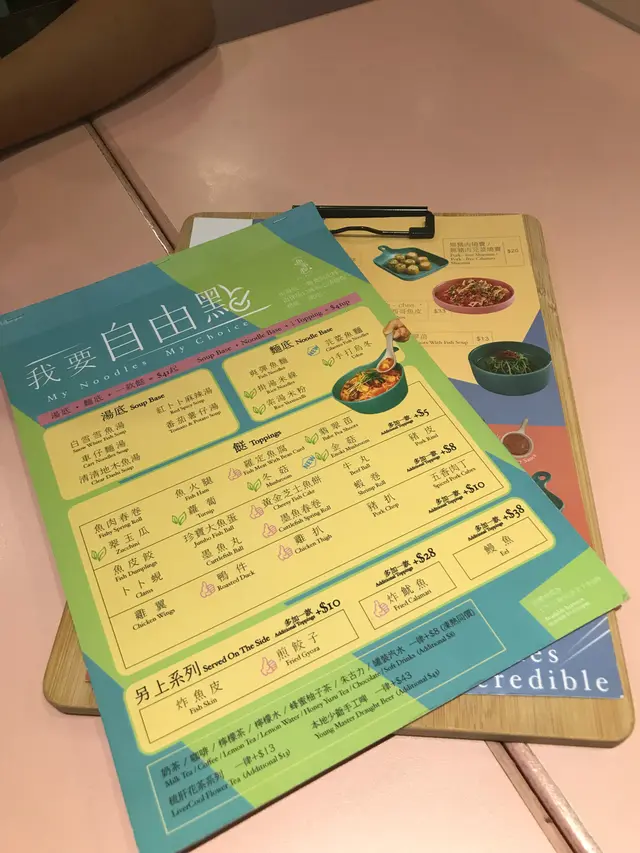 我要自由點
My Noodles My Choice
湯底 + 麵底 + 一款餸 = $41起
Soup Base + Noodle Base + 1 Topping = $41up
湯底 Soup Base
白雪雪魚湯
Snow White Fish Soup
車仔麵湯
Cart Noodles Soup
清清地木魚湯
Clear Dashi Soup
紅卜卜麻辣湯
Red Spicy Soup
番茄薯仔湯
Tomato & Potato Soup
麵底 Noodle Base
爽彈魚麵
Fish Noodles
滑湯米線
Rice Noodles
米粉
Rice Vermicelli
芫荽魚麵
Cilantro Fish Noodles
半日烏冬
Udon
餸 Toppings
多加一款 +$5
Additional Toppings
魚肉春卷
Fishy Spring Roll
魚火腿
Fish Ham
羅定魚腐
Fish Meat With Bean Curd
翡翠苗
Baby Pea Shoots
翠玉瓜
Zucchini
蘿蔔
Turnip
冬菇
Mushroom
金菇
Enoki Mushroom
豬皮
Pork Rind
多加一款 +$8
Additional Toppings
魚皮餃
Fish Dumplings
珍寶大魚蛋
Jumbo Fish Ball
黃金芝士魚餅
Cheesy Fish Cake
牛丸
Beef Ball
五香肉丁
Spiced Pork Cubes
卜卜蜆
Clams
墨魚丸
Cuttlefish Ball
墨魚春卷
Cuttlefish Spring Roll
蝦卷
Shrimp Roll
多加一款 +$10
Additional Toppings
雞翼
Chicken Wings
鴨件
Roasted Duck
雞扒
Chicken Thigh
豬扒
Pork Chop
多加一款 +$38
Additional Toppings
鰻魚
Eel
另上系列 Served On The Side
多加一款 +$10
Additional Toppings
炸魚皮
Fish Skin
煎餃子
Fried Gyoza
多加一款 +$28
Additional Toppings
炸魷魚
Fried Calamari
奶茶 / 咖啡 / 檸檬茶 / 檸檬水 / 蜂蜜柚子茶 / 朱古力 / 罐裝汽水 一律+$8 (凍熱同價)
Milk Tea / Coffee / Lemon Tea / Lemon Water / Honey Yuzu Tea / Chocolate / Soft Drinks (Additional $8)
梳肝花茶系列 一律+$13
LiverCool Flower Tea (Additional $13)
本地少爺手工啤 一律+$43
Young Master Draught Beer (Additional $43)
$20
credible